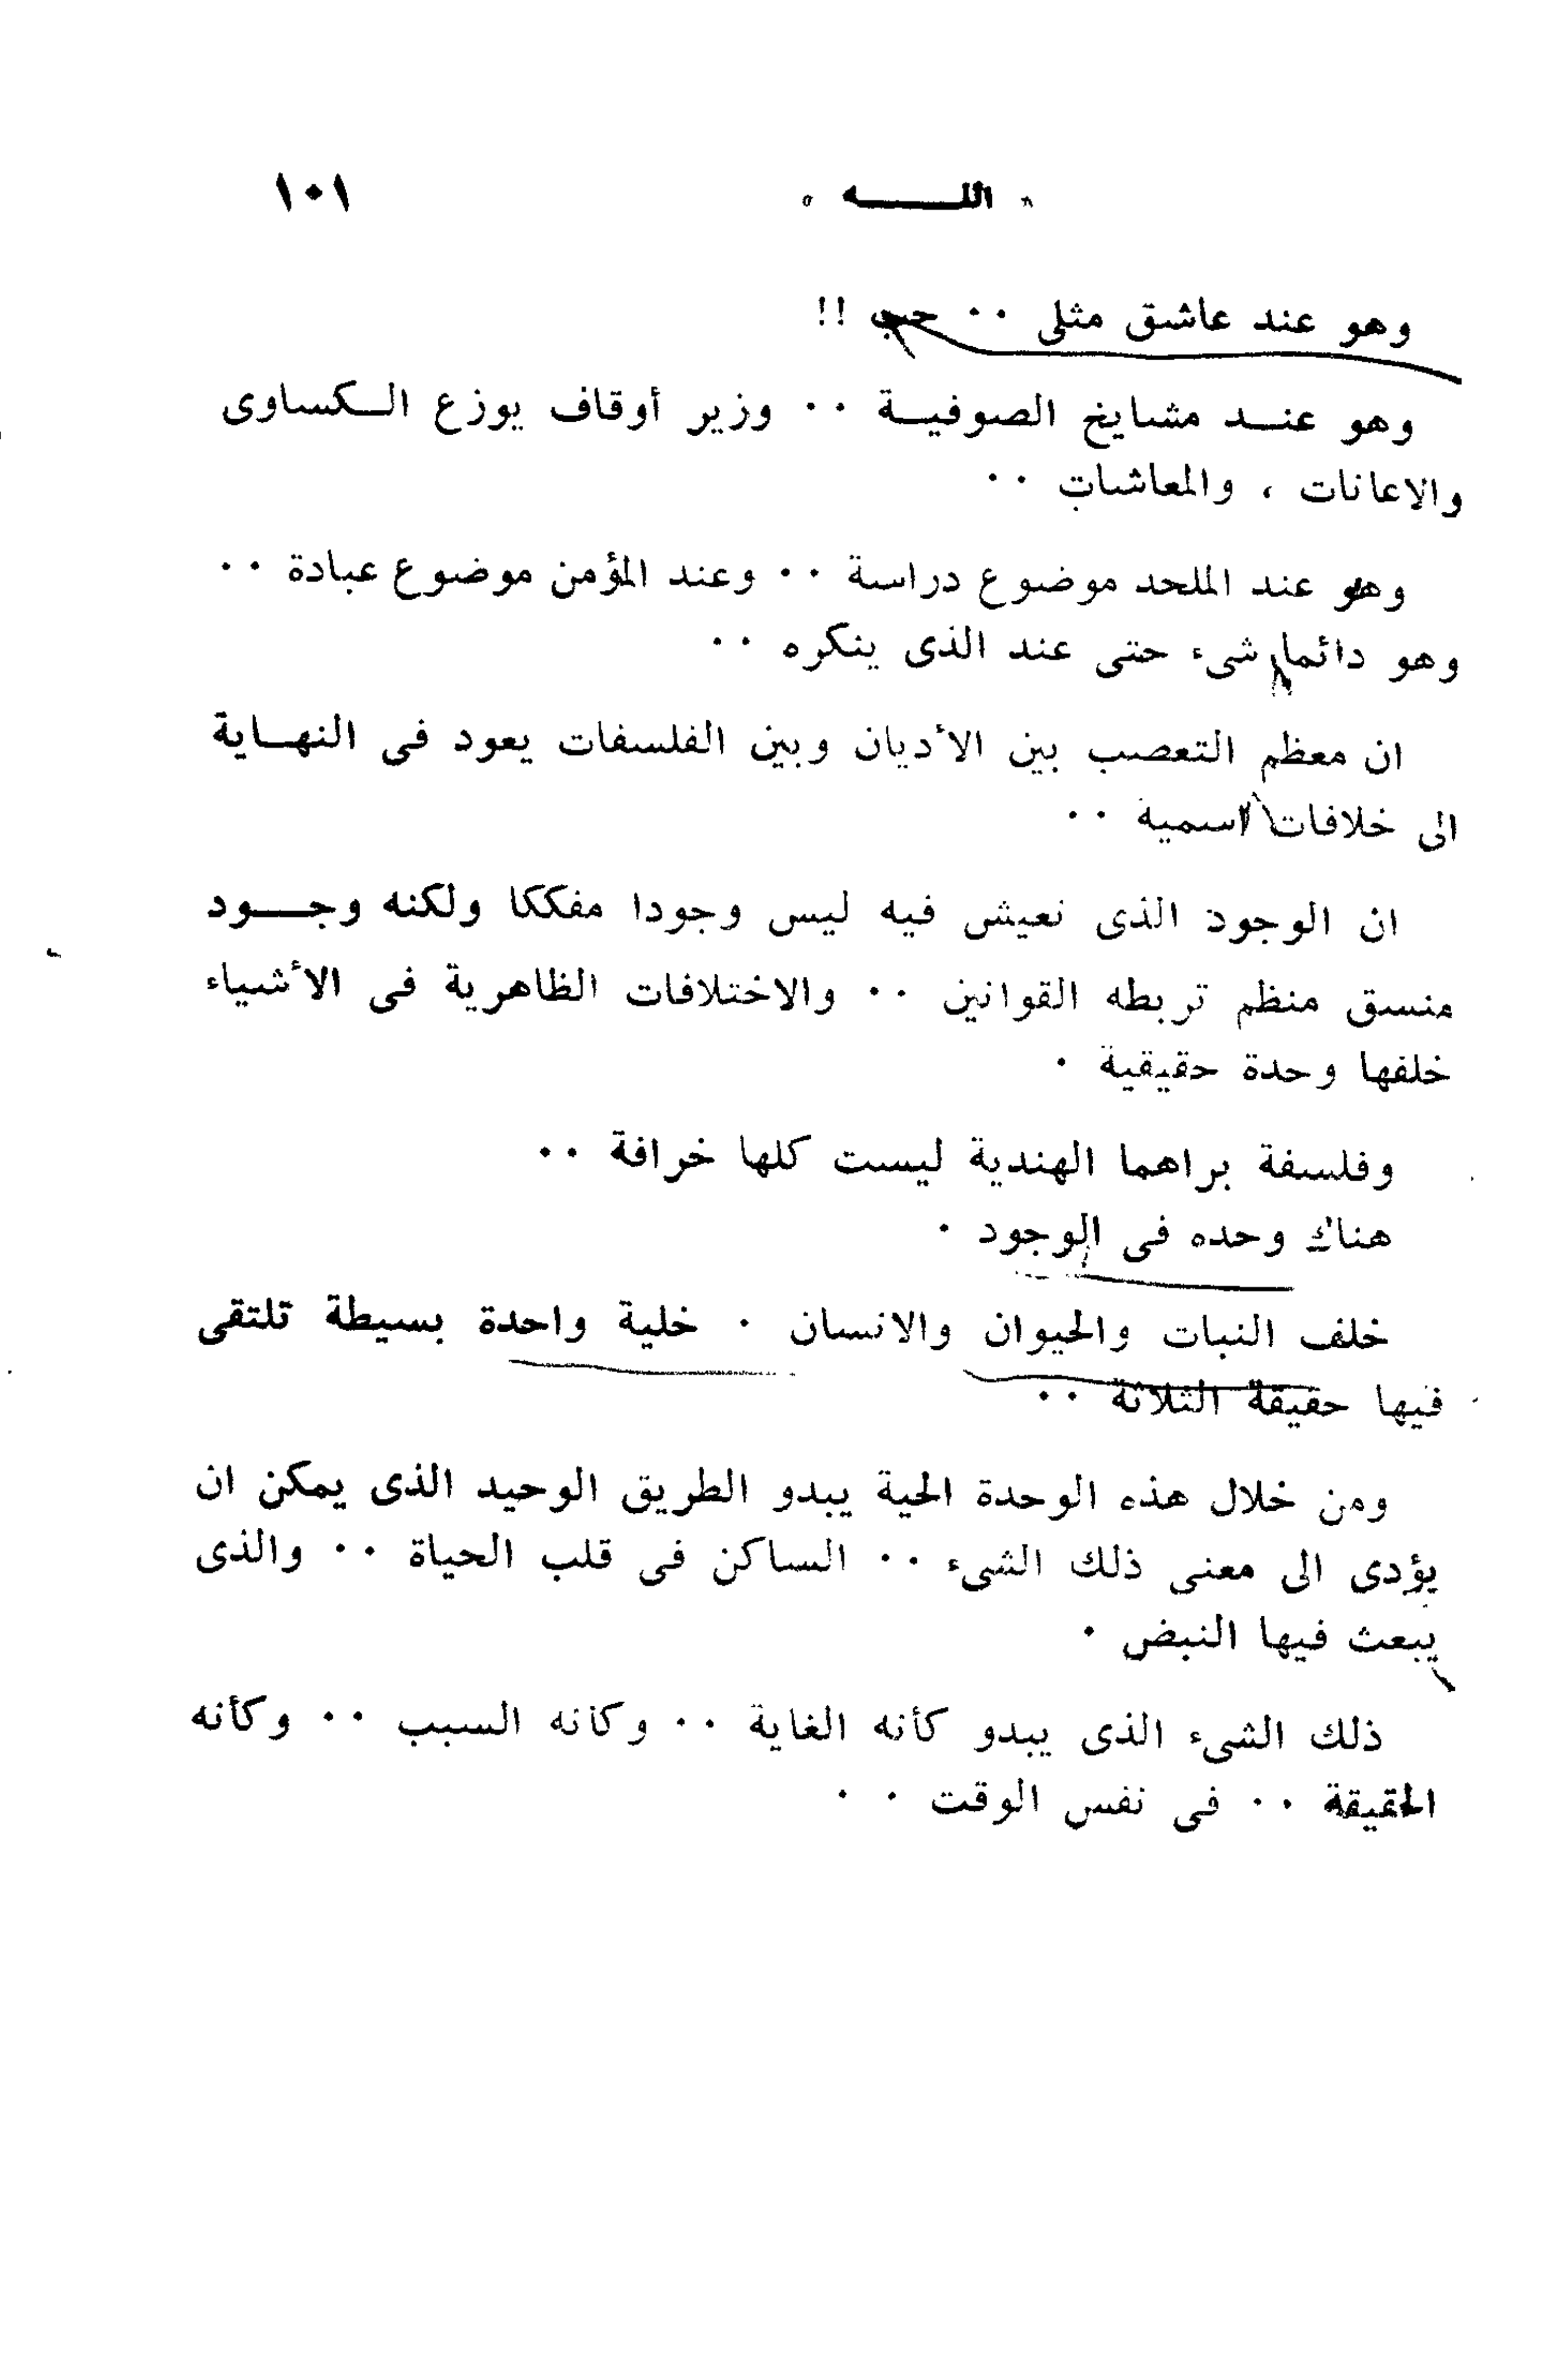 « اللـــــه » ١٠١
وهو عند عاشق مثلى ٠٠ حب !!
وهو عنــد مشايخ الصوفيــة ٠٠ وزير أوقاف يوزع الــكساوى
والاعانات ، والمعاشات ٠٠
وهو عند الملحد موضوع دراسة ٠٠ وعند المؤمن موضوع عبادة ٠٠
وهو دائما شىء حتى عند الذى ينكره ٠٠
ان معظم التعصب بين الأديان وبين الفلسفات يعود فى النهــاية
الى خلافات اسمية ٠٠
ان الوجود الذى نعيش فيه ليس وجودا مفككا ولكنه وجـــود
منسق منظم تربطه القوانين ٠٠ والاختلافات الظاهرية فى الأشياء
خلفها وحدة حقيقية ٠
وفلسفة براهما الهندية ليست كلها خرافة ٠٠
هناك وحده فى الوجود ٠
خلف النبات والحيوان والانسان ٠ خلية واحدة بسيطة تلتقى
فيها حقيقة الثلاثة ٠٠
ومن خلال هذه الوحدة الحية يبدو الطريق الوحيد الذى يمكن ان
يؤدى الى معنى ذلك الشىء ٠٠ الساكن فى قلب الحياة ٠٠ والذى
يبعث فيها النبض ٠
ذلك الشىء الذى يبدو كأنه الغاية ٠٠ وكانه السبب ٠٠ وكأنه
الحقيقة ٠٠ فى نفس الوقت ٠ ٠